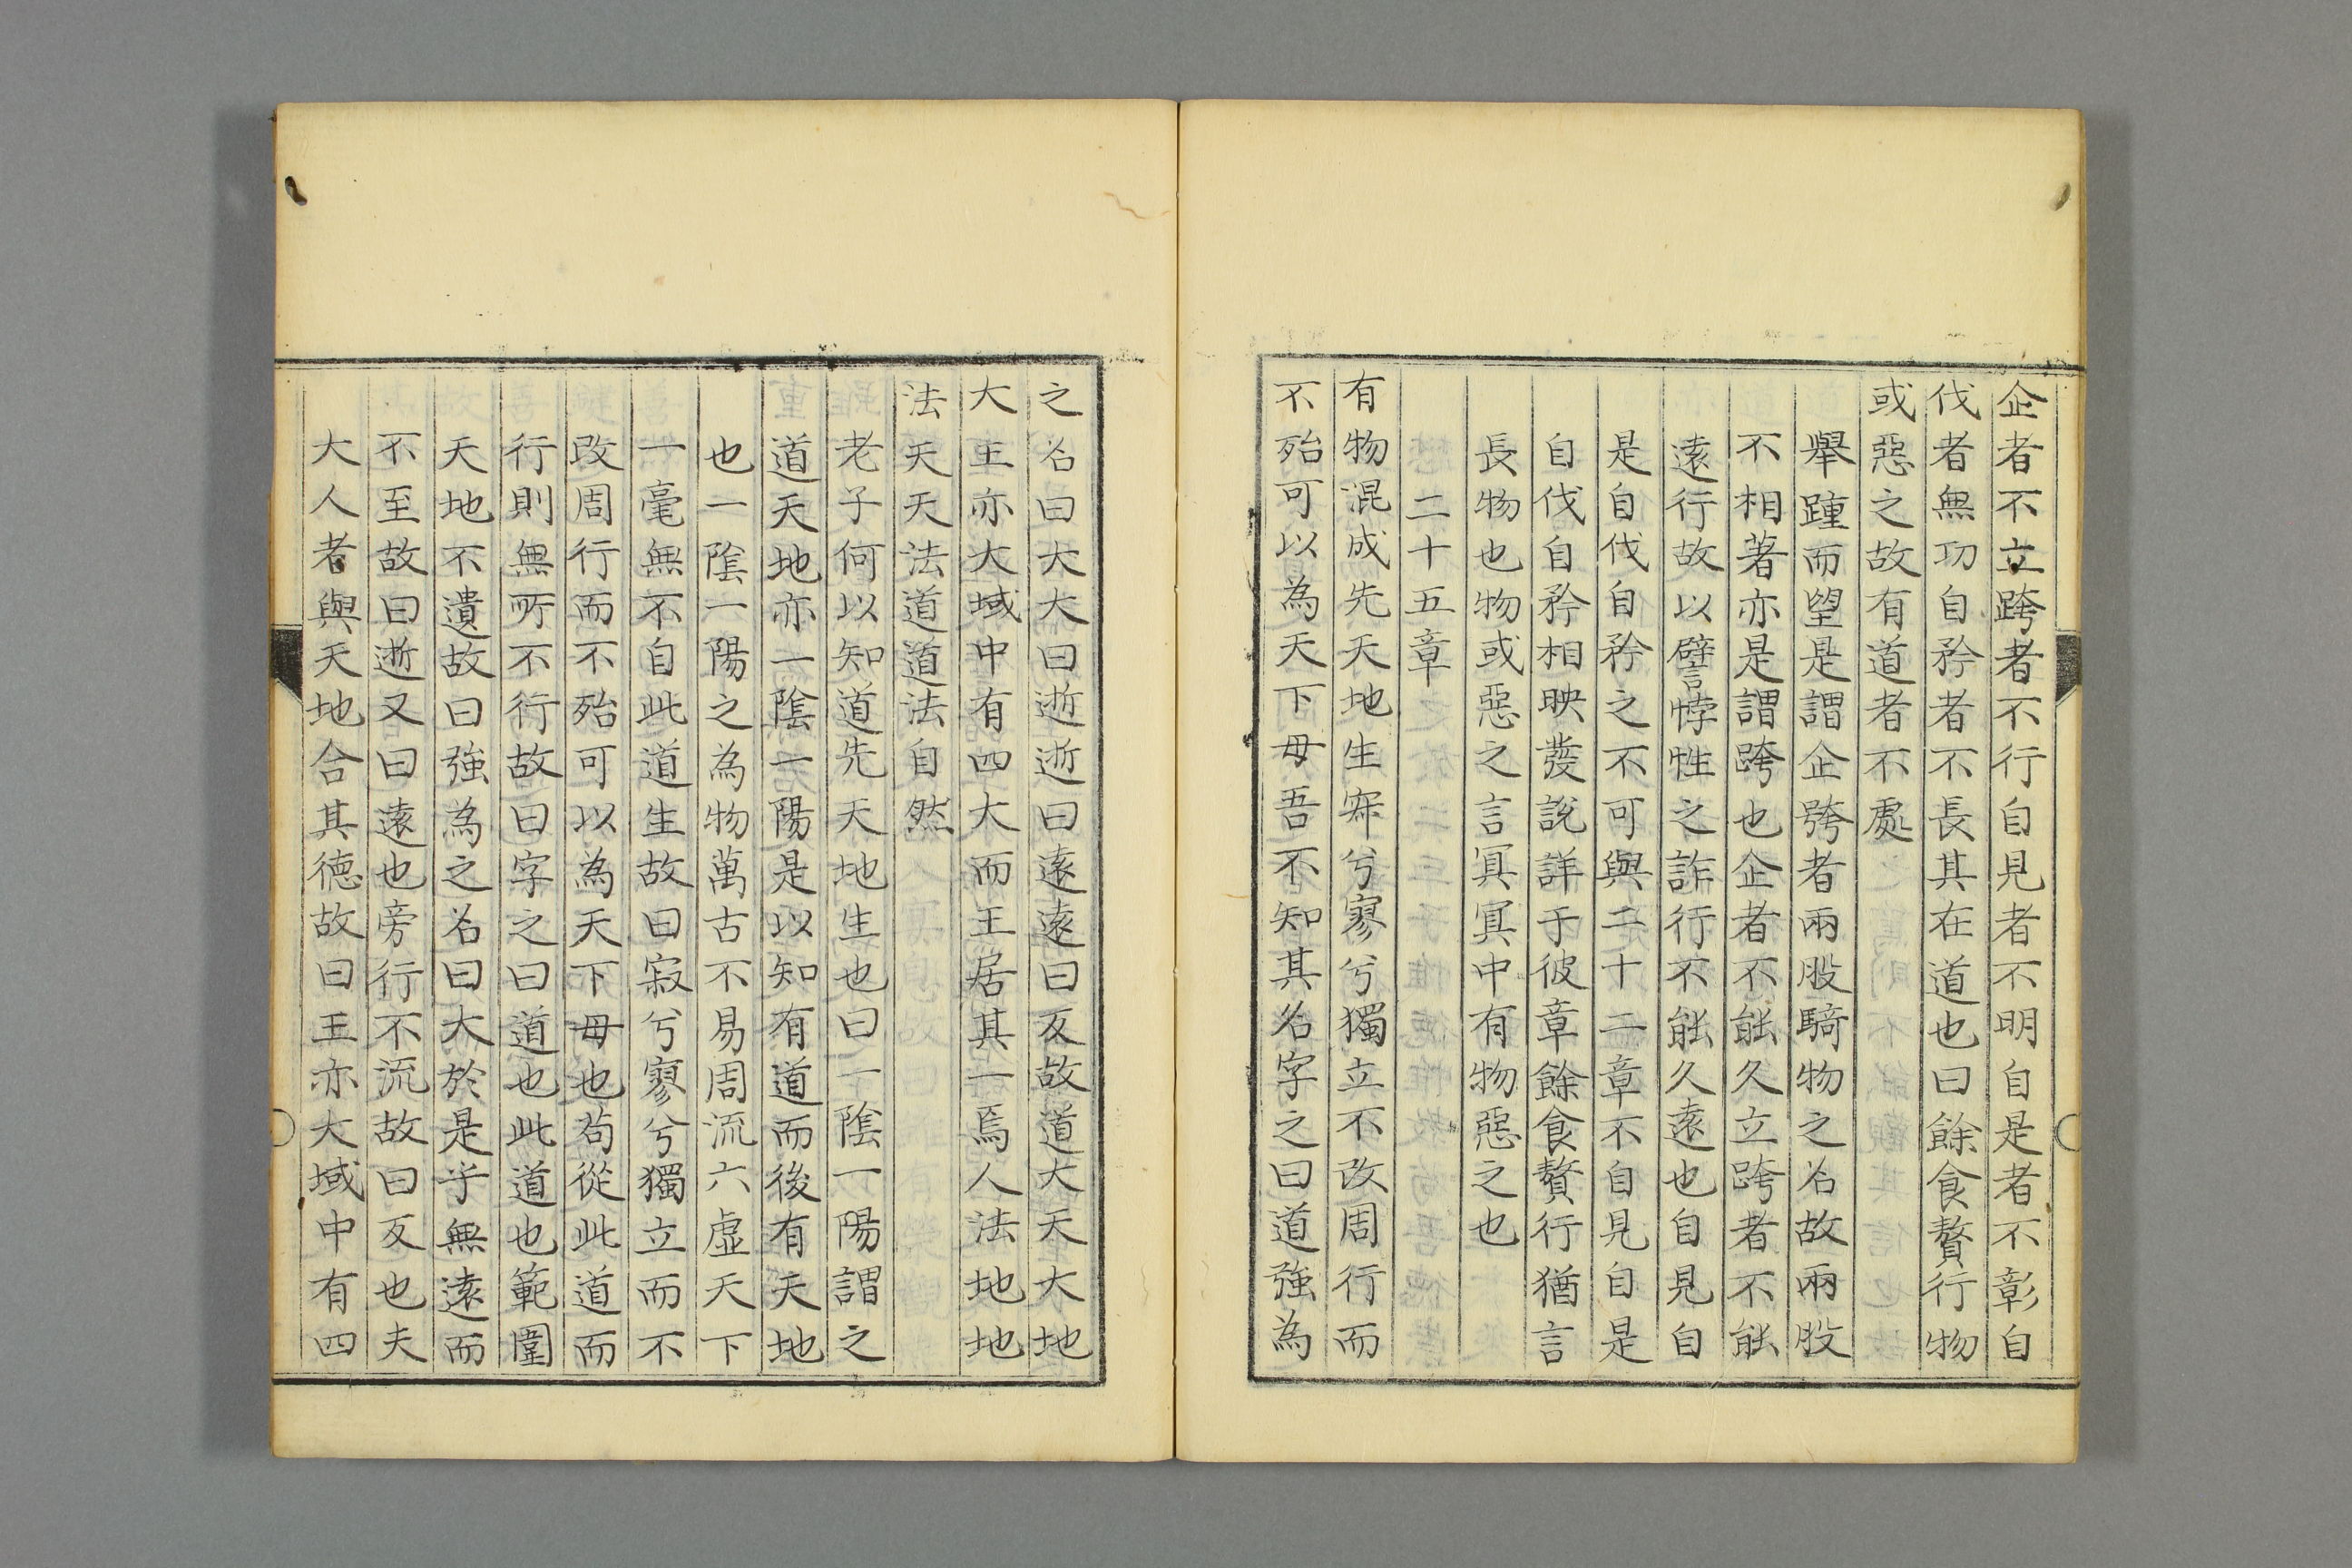 企者不立跨者不行自見者不明自是者不彰自
伐者無功自矜者不長其在道也曰餘食贅行物
或惡之故有道者不處
舉踵而望是謂企跨者兩股騎物之名故兩股
不相著亦是謂跨也企者不能久立跨者不能
遠行故以譬悖性之詐行不能久遠也自見自
是自伐自矜之不可與二十二章不自見自是
自伐自矜相映發說詳于彼章餘食贅行猶言
長物也物或惡之言冥冥中有物惡之也
二十五章
有物混成先天地生寂兮寥兮獨立不改周行而
不殆可以為天下母吾不知其名字之曰道強為
之名曰大大曰逝逝曰遠遠曰反故道大天大地
大王亦大域中有四大而王居其一焉人法地地
法天天法道道法自然
老子何以知道先天地生也曰一陰一陽謂之
道天地亦一陰一陽是以知有道而後有天地
也一陰一陽之為物萬古不易周流六虛天下
一毫無不自此道生故曰寂兮寥兮獨立而不
改周行而不殆可以為天下母也苟從此道而
行則無所不行故曰字之曰道也此道也範圍
天地不遺故曰強為之名曰大於是乎無遠而
不至故曰逝又曰遠也旁行不流故曰反也夫
大人者與天地合其德故曰王亦大域中有四